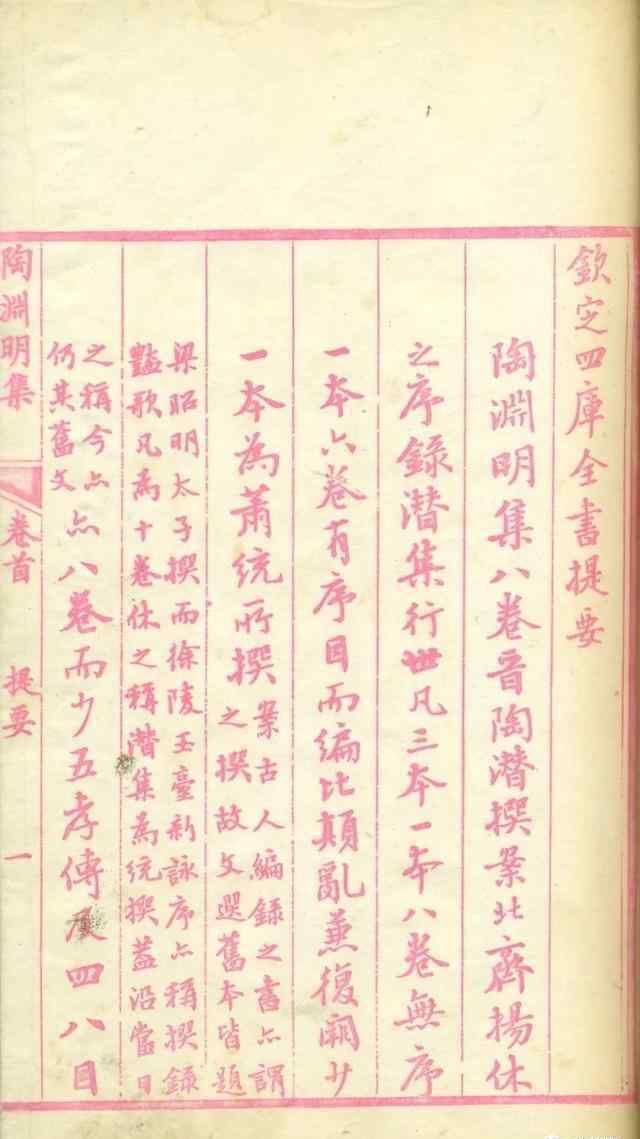 欽定四庫全書提要
陶淵明集八卷晉陶潛撰案北齊揚休
之序錄潛集行世凡三本一本八卷無序
一本六卷有序目而編比顛亂兼復闕少
一本為蕭統所撰案古人編錄之書亦謂
之撰故文選舊本皆題
梁昭明太子撰而徐陵玉臺新詠序亦稱撰錄
豔歌凡為十卷休之稱潛集為統撰蓋沿當日
之稱今亦
仍其舊文亦八卷而少五孝傳及四八目
陶淵明集 卷首 提要 一